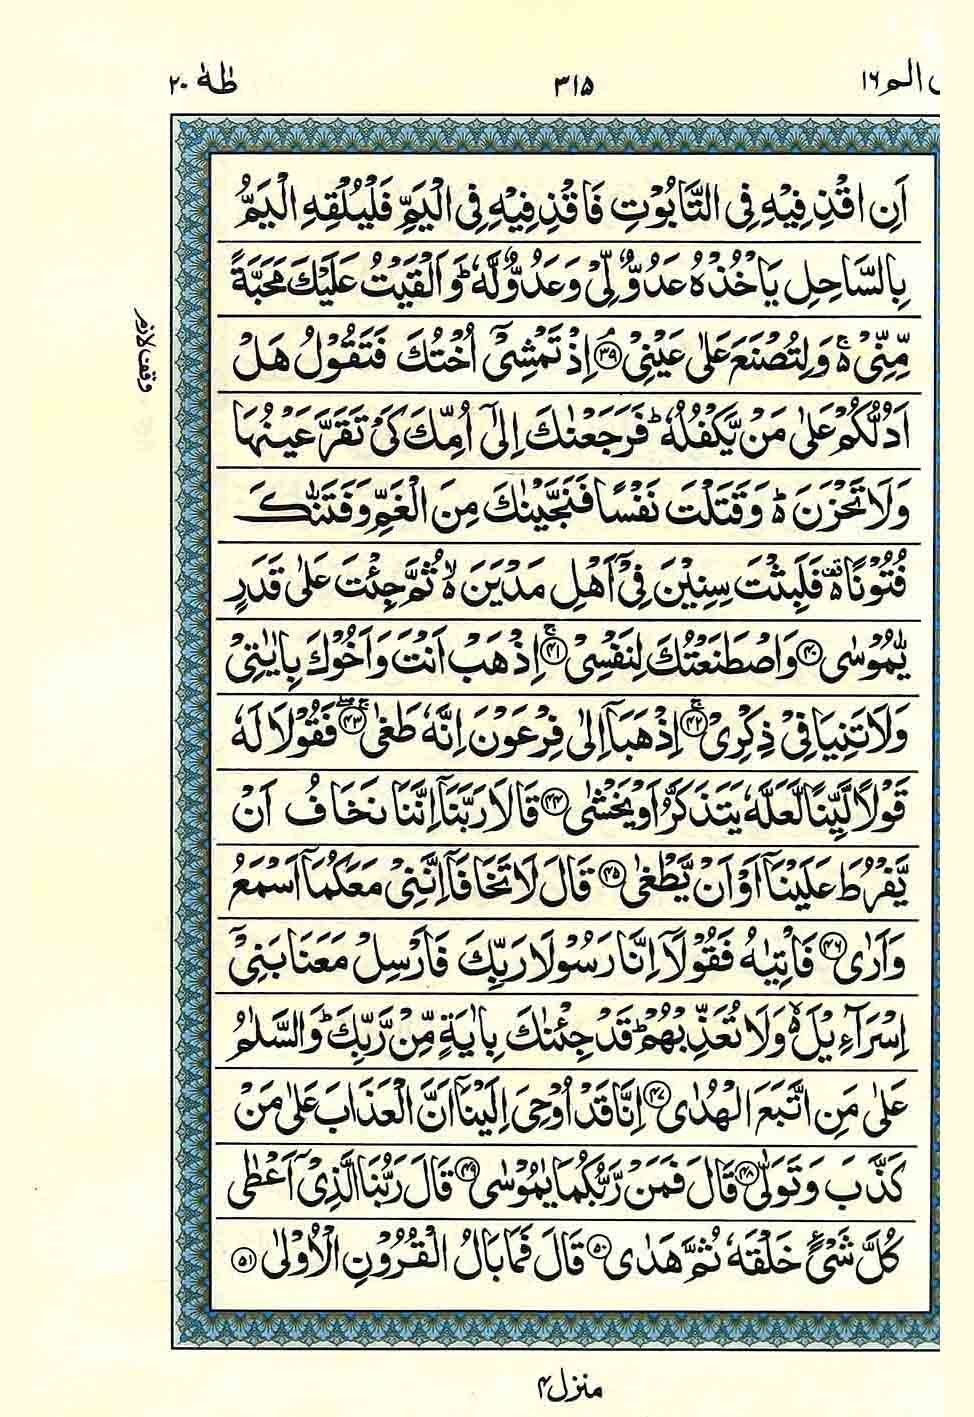 ال‍م ١٦
٣١٥
طٰهٰ ٢٠
اَنِ اقْذِفِيْهِ فِى التَّابُوْتِ فَاقْذِفِيْهِ فِى الْيَمِّ فَلْيُلْقِهِ الْيَمُّ
بِالسَّاحِلِ يَاْخُذْهُ عَدُوٌّ لِّىْ وَعَدُوٌّ لَّهٗ ؕ وَاَلْقَيْتُ عَلَيْكَ مَحَبَّةً
مِّنِّىْ ۚ۬ وَلِتُصْنَعَ عَلٰى عَيْنِىْ ۘ‏﴿۳۹﴾ اِذْ تَمْشِىْۤ اُخْتُكَ فَتَقُوْلُ هَلْ
اَدُلُّكُمْ عَلٰى مَنْ يَّكْفُلُهٗ ؕ فَرَجَعْنٰكَ اِلٰٓى اُمِّكَ كَىْ تَقَرَّ عَيْنُهَا
وَلَا تَحْزَنَ ؕ۬ وَقَتَلْتَ نَفْسًا فَنَجَّيْنٰكَ مِنَ الْغَمِّ وَفَتَنّٰكَ
فُتُوْنًا ۫۬ فَلَبِثْتَ سِنِيْنَ فِىْۤ اَهْلِ مَدْيَنَ ۙ۬ ثُمَّ جِئْتَ عَلٰى قَدَرٍ
يّٰمُوْسٰى ﴿۴۰﴾ وَاصْطَنَعْتُكَ لِنَفْسِىْ ۚ﴿۴۱﴾ اِذْهَبْ اَنْتَ وَاَخُوْكَ بِاٰيٰتِىْ
وَلَا تَنِيَا فِىْ ذِكْرِىْ ۚ﴿۴۲﴾ اِذْهَبَاۤ اِلٰى فِرْعَوْنَ اِنَّهٗ طَغٰى ۚۖ﴿۴۳﴾ فَقُوْلَا لَهٗ
قَوْلًا لَّيِّنًا لَّعَلَّهٗ يَتَذَكَّرُ اَوْ يَخْشٰى ﴿۴۴﴾ قَالَا رَبَّنَاۤ اِنَّنَا نَخَافُ اَنْ
يَّفْرُطَ عَلَيْنَاۤ اَوْ اَنْ يَّطْغٰى ﴿۴۵﴾ قَالَ لَا تَخَافَاۤ اِنَّنِىْ مَعَكُمَاۤ اَسْمَعُ
وَاَرٰى ﴿۴۶﴾ فَاْتِيٰهُ فَقُوْلَاۤ اِنَّا رَسُوْلَا رَبِّكَ فَاَرْسِلْ مَعَنَا بَنِىْۤ
اِسْرَآءِيْلَ ۙ۬ وَلَا تُعَذِّبْهُمْ ؕ قَدْ جِئْنٰكَ بِاٰيَةٍ مِّنْ رَّبِّكَ ؕ وَالسَّلٰمُ
عَلٰى مَنِ اتَّبَعَ الْهُدٰى ﴿۴۷﴾ اِنَّا قَدْ اُوْحِىَ اِلَيْنَاۤ اَنَّ الْعَذَابَ عَلٰى مَنْ
كَذَّبَ وَتَوَلّٰى ﴿۴۸﴾ قَالَ فَمَنْ رَّبُّكُمَا يٰمُوْسٰى ﴿۴۹﴾ قَالَ رَبُّنَا الَّذِىْۤ اَعْطٰى
كُلَّ شَىْءٍ خَلْقَهٗ ثُمَّ هَدٰى ﴿۵۰﴾ قَالَ فَمَا بَالُ الْقُرُوْنِ الْاُوْلٰى ﴿۵۱﴾
وقف لازم
منزل ۴